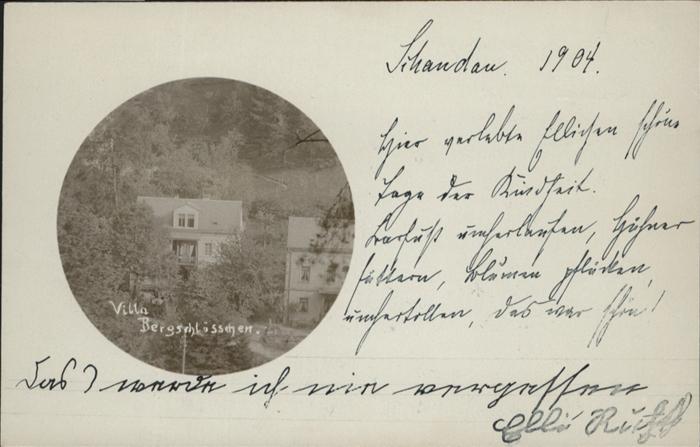 Schandau. 1904.
Hier verlebte Ellichen schöne
Tage der Kindheit.
Barfuß umherlaufen, Hühner
füttern, Blumen pflücken,
umhertollen, das war schön!
Villa
Bergschlösschen.
Das werde ich nie vergessen
Elli